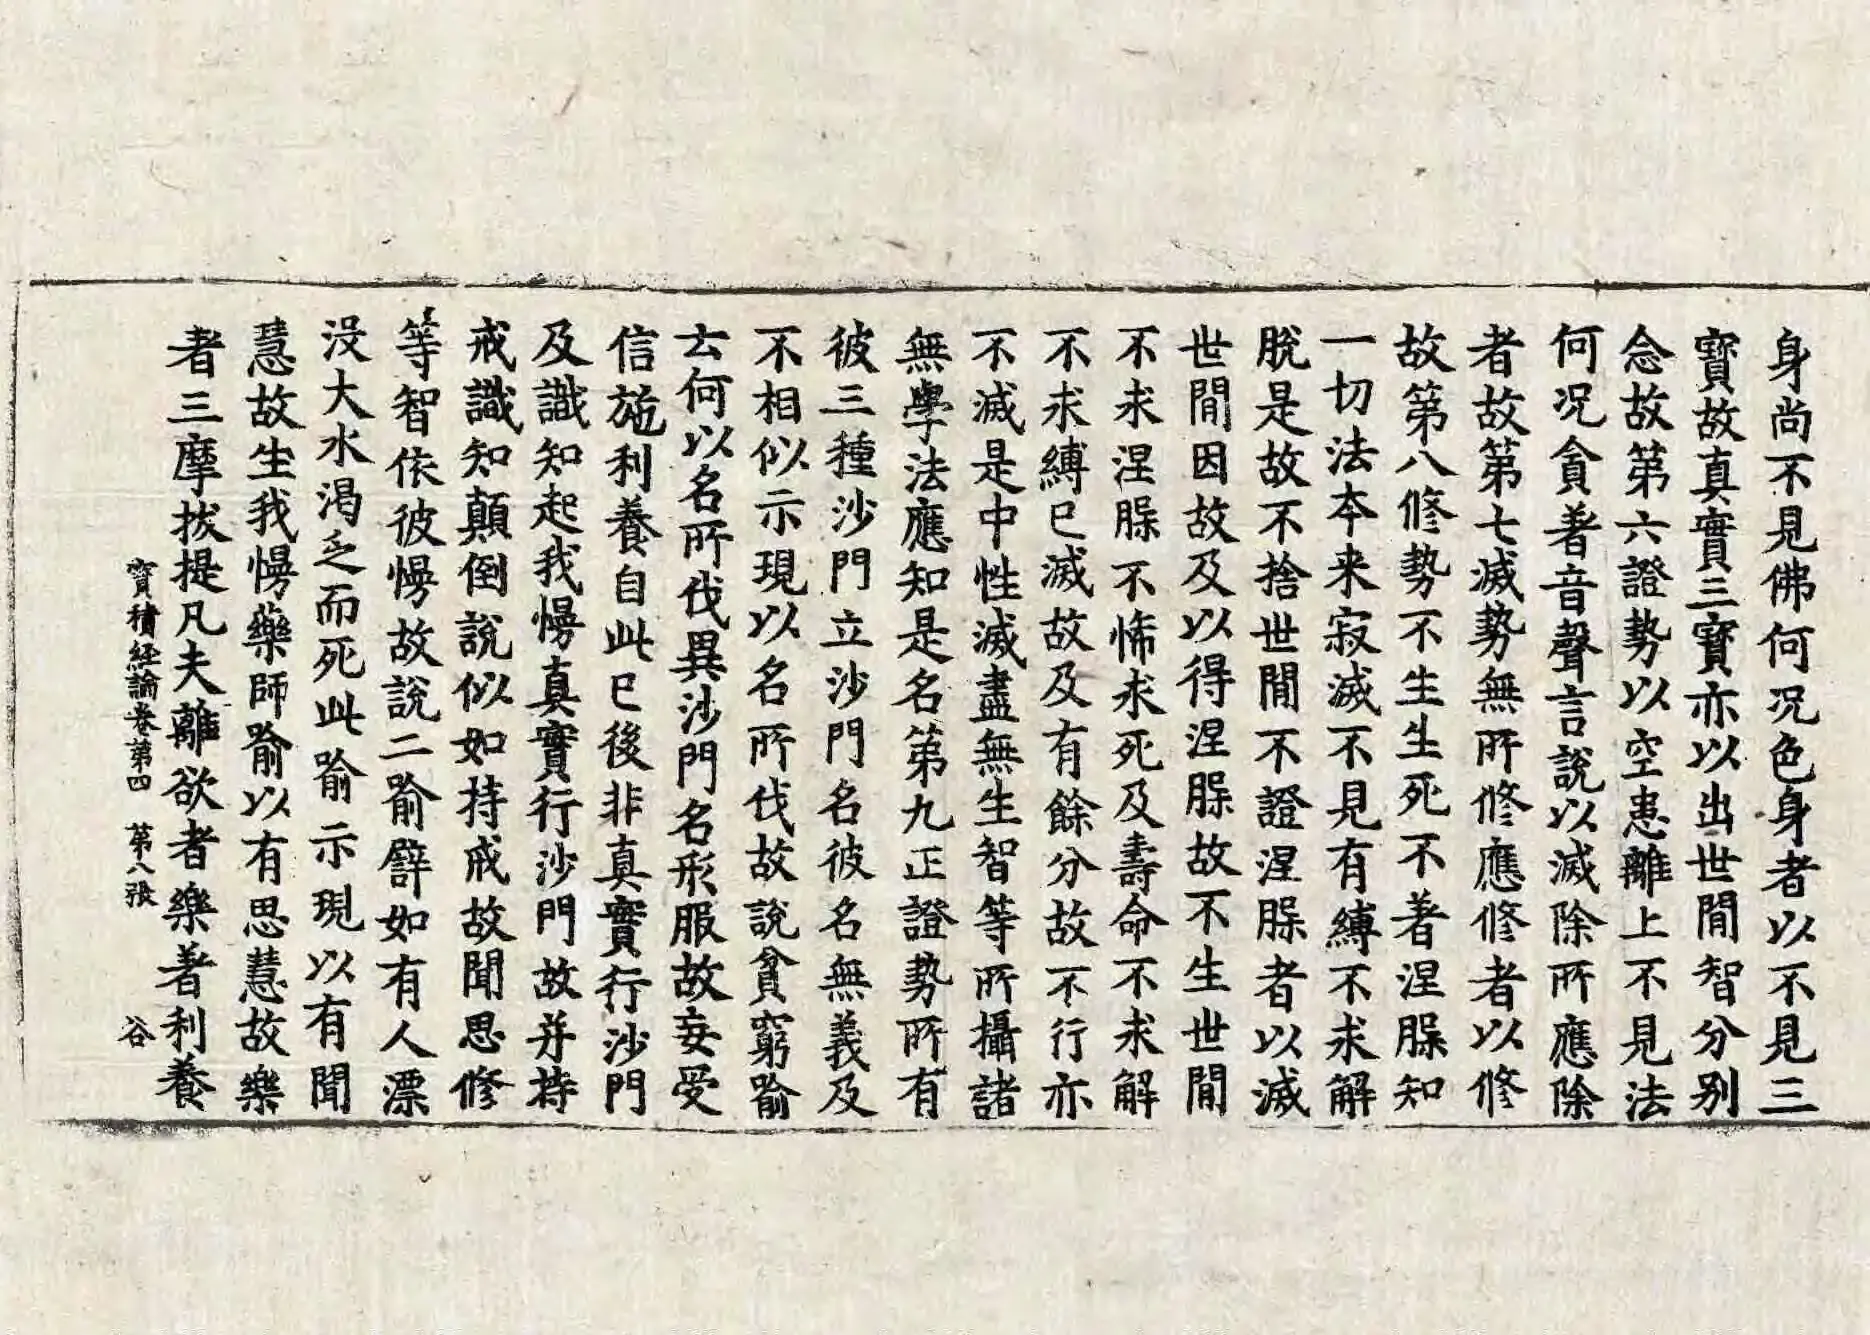 身尚不見佛何况色身者以不見三
寳故真實三寳亦以出世閒智分別
念故第六證勢以空患離上不見法
何况貪著音聲言說以滅除所應除
者故第七滅勢無所修應修者以修
故第八修勢不生生死不著涅槃知
一切法本来寂滅不見有縛不求解
脫是故不捨世閒不證涅槃者以滅
世閒因故及以得涅槃故不生世閒
不求涅槃不悕求死及壽命不求解
不求縛已滅故及有餘分故不行亦
不滅是中性滅盡無生智等所攝諸
無學法應知是名第九正證勢所有
彼三種沙門立沙門名彼名無義及
不相似示現以名所伐故說貧窮喻
云何以名所伐異沙門名形服故妄受
信施利養自此已後非真實行沙門
及識知起我慢真實行沙門故并持
戒識知顛倒說似如持戒故聞思修
等智依彼慢故說二喻譬如有人漂
没大水渴乏而死此喻示現以有聞
慧故生我慢藥師喻以有思慧故樂
者三摩拔提凡夫離欲者樂著利養
寳積経論卷第四 第八張 谷